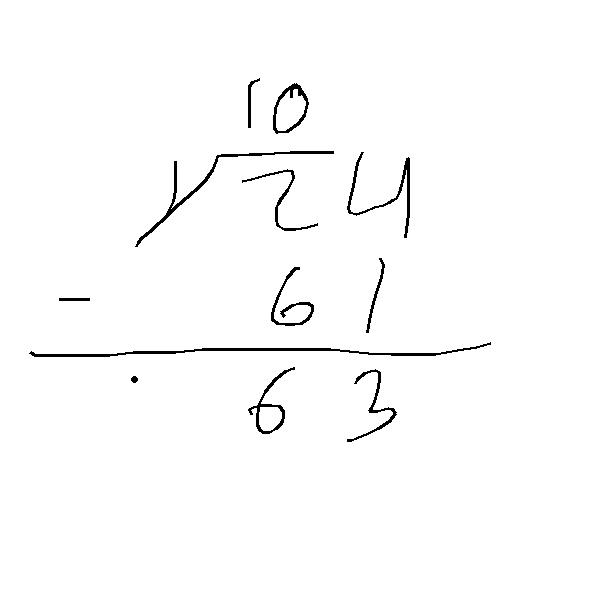 10
124
- 61
63